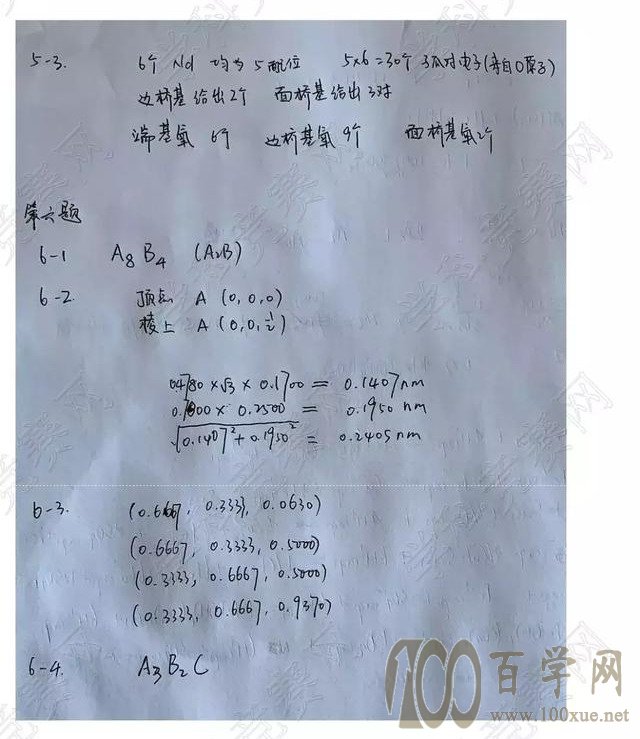 5-3. 6个 Nd 均为5配位 5×6=30个 孤对电子(来自O原子)
边桥基给出2个 面桥基给出3对
端基氧 6个 边桥基氧 9个 面桥基氧2个
第六题
6-1 A8 B4 (A2B)
6-2. 顶点 A (0,0,0)
棱上 A (0,0,½)
0.4780×√3×0.1700 = 0.1407nm
0.7800× 0.2500 = 0.1950 nm
√0.1407²+0.1950² = 0.2405 nm
6-3. (0.6667, 0.3333, 0.0630)
(0.6667, 0.3333, 0.5000)
(0.3333, 0.6667, 0.5000)
(0.3333, 0.6667, 0.9370)
6-4. A3 B2 C
100百学网
www.100xue.net